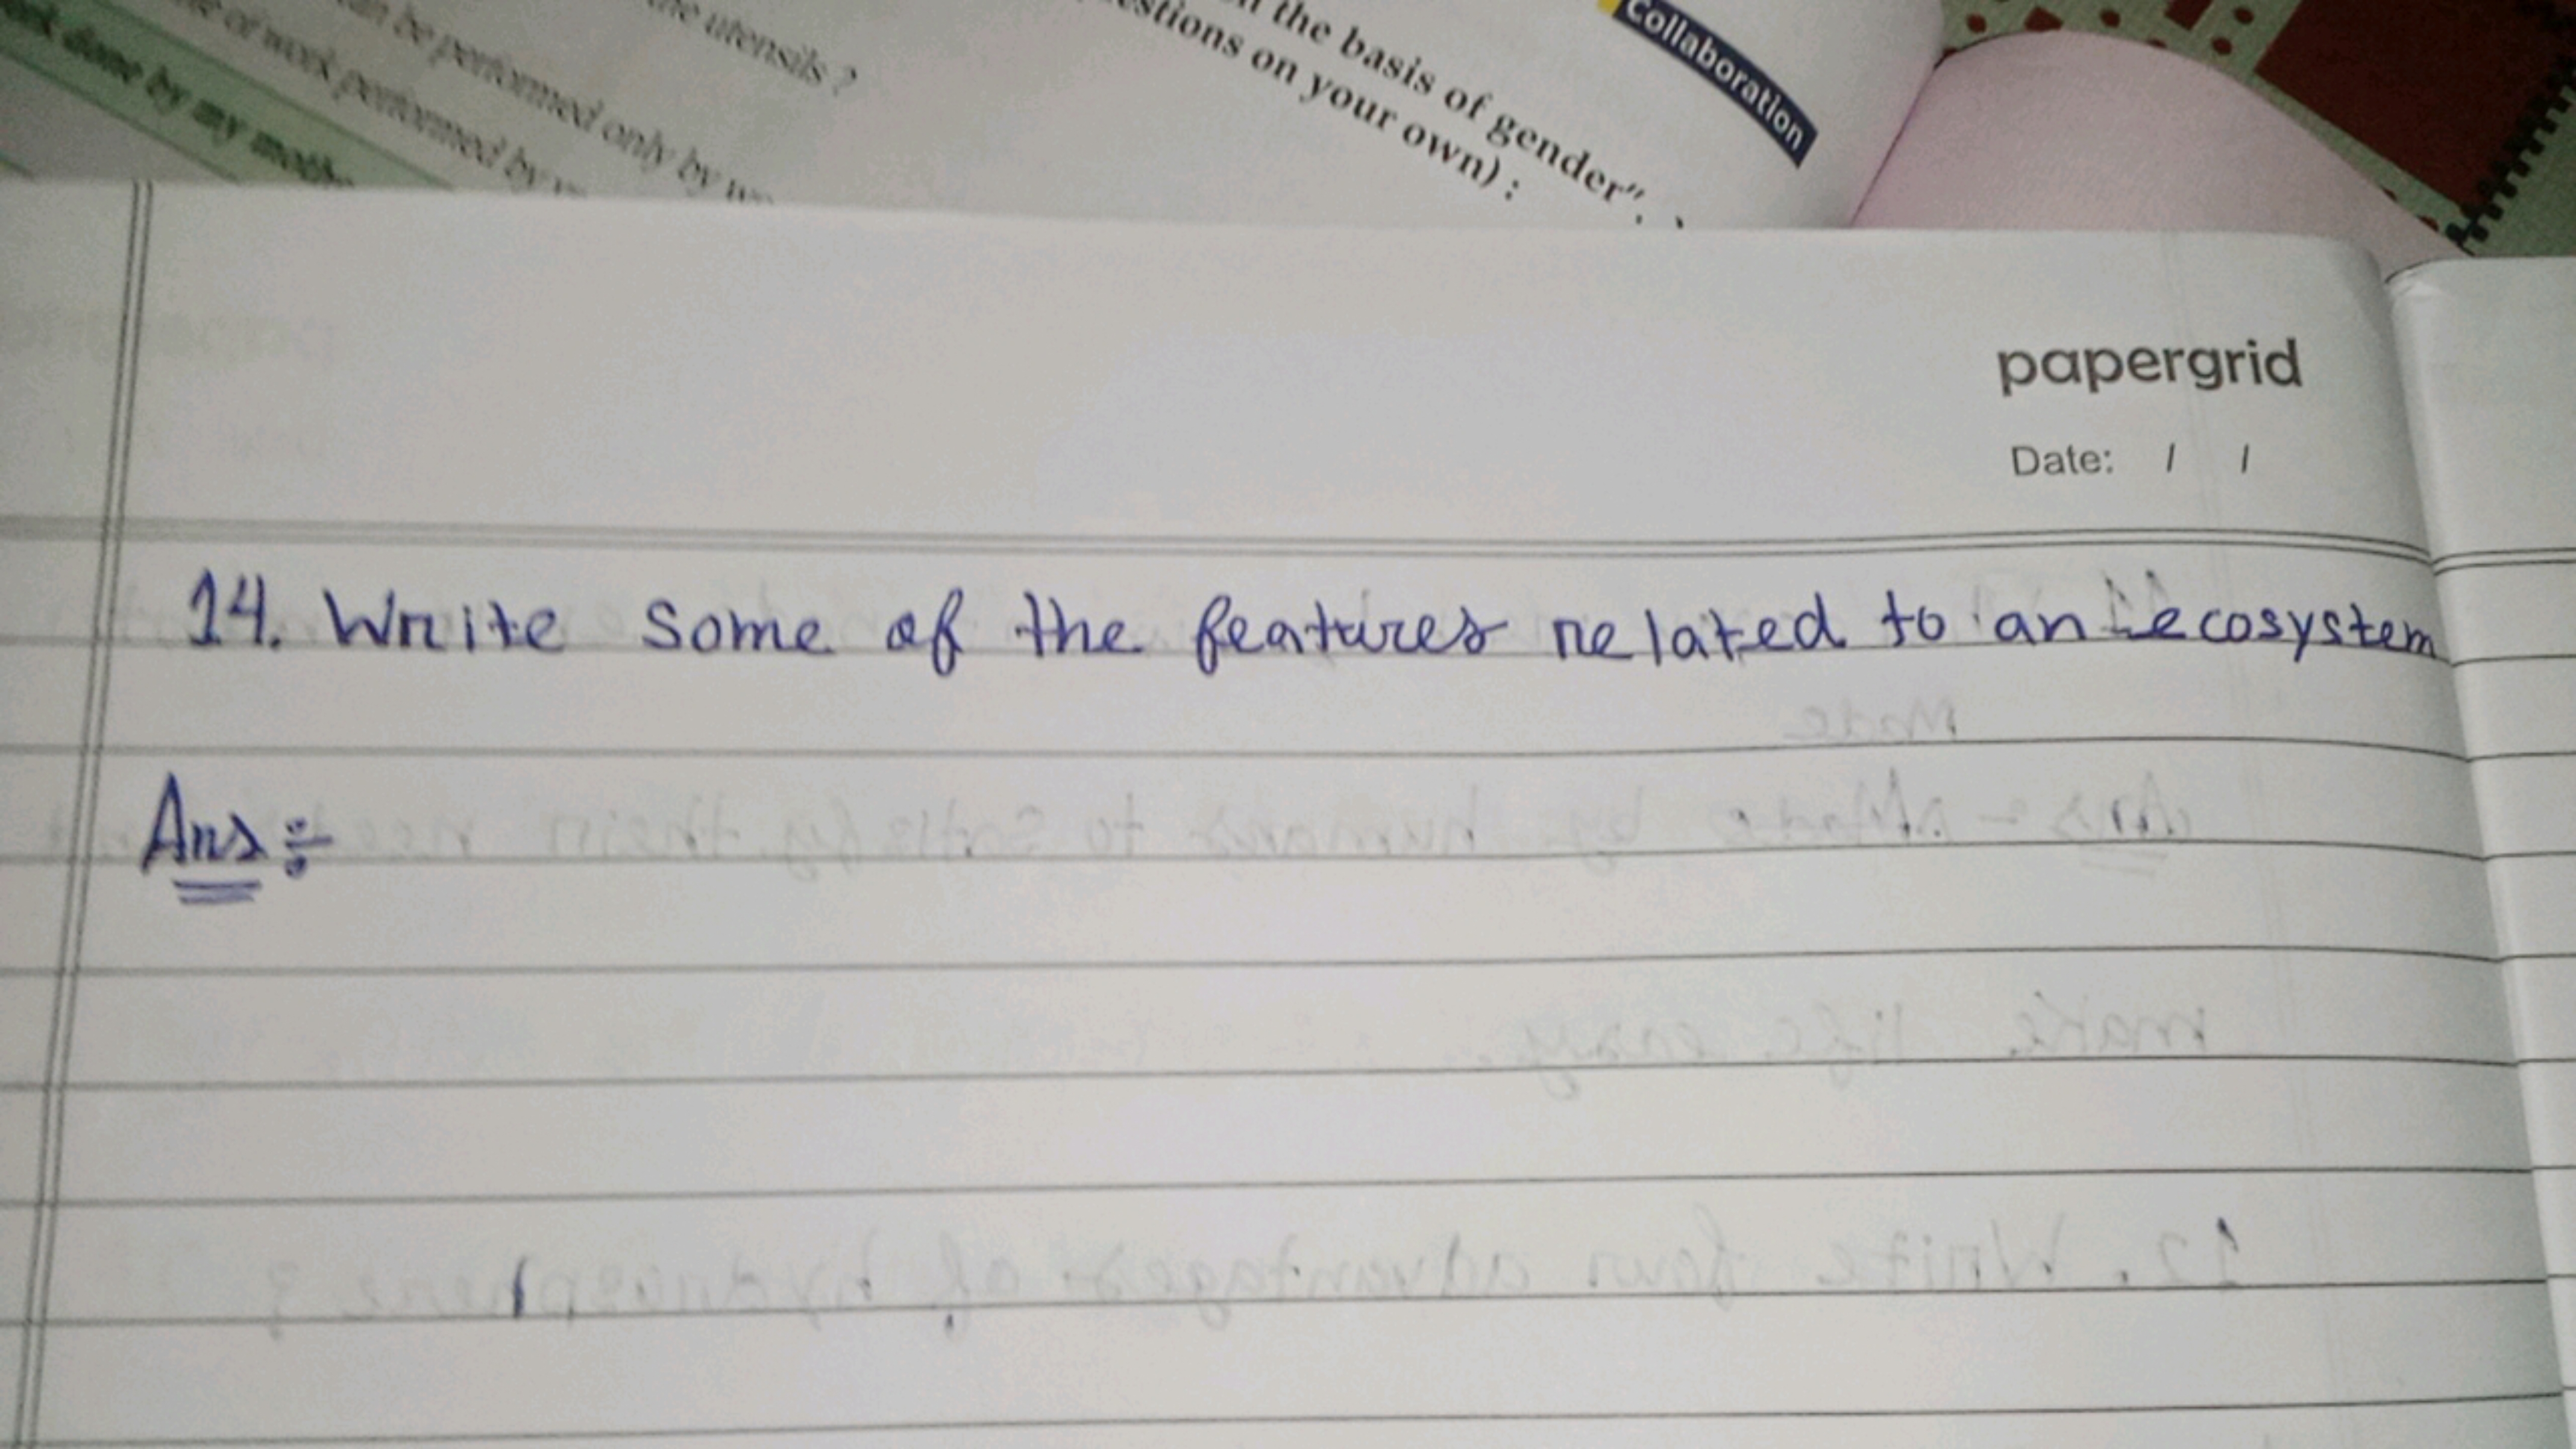 the utensils ?
can be performed only by
of work performed by
done by my
the basis of gender".
stions on your own) :
Collaboration
papergrid
Date: / /
14. Write some of the features related to an ecosystem
Ans ÷